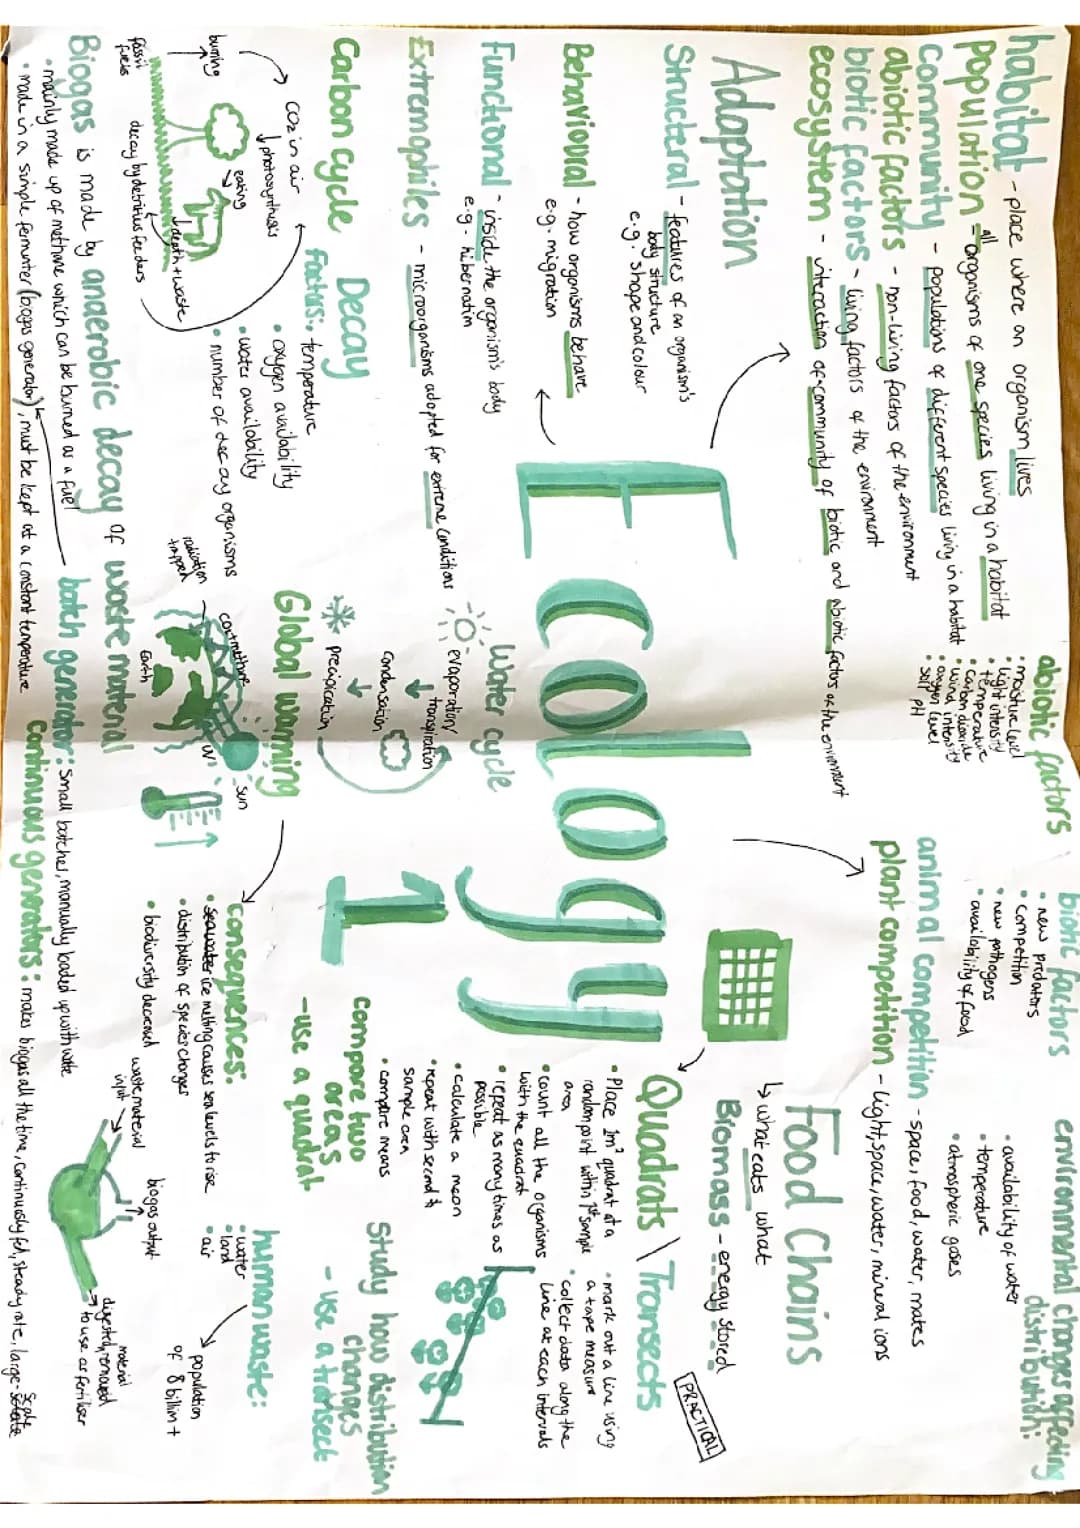 habitat - place where an organism lives
Population - all organisms of one species living in a habitat
Community - populations of different species living in a habitat
abiotic factors - non-living factors of the environment
biotic factors - living factors of the environment
ecosystem - interaction of community of biotic and abiotic factors of the environment
abiotic factors
• moisture level
• light intensity
• temperature
• carbon dioxide
• wind intensity
• oxygen level
• soil pH
biotic factors
• new predators
• competition
• new pathogens
• availability of food
environmental changes affecting
distribution:
• availability of water
• temperature
• atmospheric gases
animal competition - space, food, water, mates
plant competition - light, space, water, mineral ions
Adaptation
Structeral - features of an organism's
body structure
e.g. shape and colour
Behavioural - how organisms behave
e.g. migration
Functional - inside the organism's body
e.g - hibernation
Extremophiles - microorganisms adapted for extreme conditions
Ecology
1
Food Chains
↳ what eats what
Biomass - energy stored
PRACTICAL
Quadrats \ Transects
• Place 1m² quadrat at a
random point within 1st sample
area
• count all the organisms
with the quadrat
• repeat as many times as
possible
• calculate a mean
• repeat with second
sample area
• compare means
• mark out a line using
a tape measure
• collect data along the
line at each intervals
compare two
areas
- use a quadrat
Study how distribution
changes
- use a transect
Water cycle
evaporation/
transpiration
condensation
precipication
Carbon cycle
CO2 in air
↓ photosynthesis
burning
eating
↓ death + waste
fossil
fuels
decay by detritus feeders
Decay
factors:
• temperature
• oxygen availability
• water availability
• number of decay organisms
Global warming
radiation
trapped
Earth
UV
sun
consequences:
• ice melting causes sea levels to rise
• distribution of species changes
• biodiversity decreased
human waste:
• water
• land
• air
population
of 8 billion +
Biogas is made by anaerobic decay of waste material
• mainly made up of methane which can be burned as a fuel
• made in a simple fermenter (biogas generator), must be kept at a constant temperature
batch generator: small batches, manually loaded up with waste
continuous generators: makes biogas all the time, continuously fed, steady rate, large-scale
waste material
input
biogas output
digested material removed
to use as fertiliser